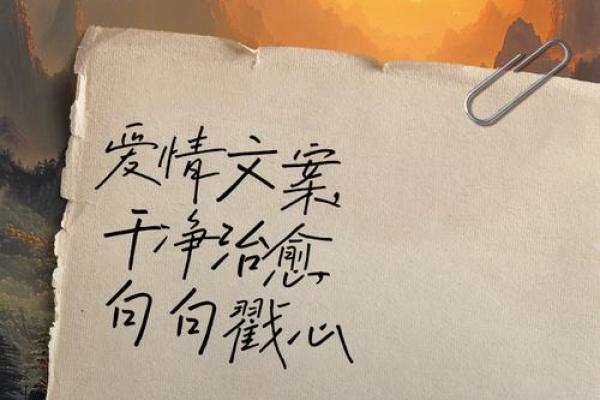 爱情文案,
干净治愈,
句句戳心